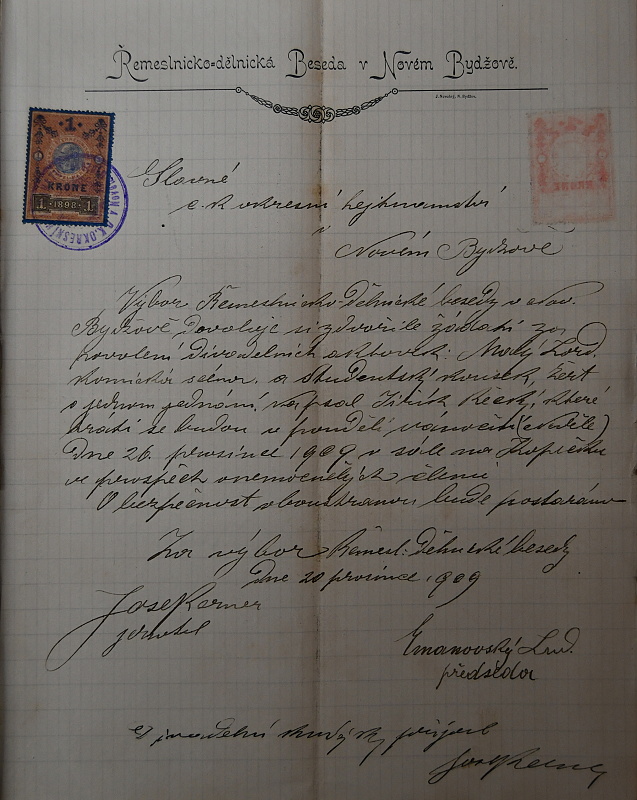 Řemeslnicko-dělnická Beseda v Novém Bydžově.
1
KRONE
1 1898 1
KRONE
Slavné
c. k. okresní hejtmanství
v
Novém Bydžově
Výbor Řemeslnicko-Dělnické besedy v Nov.
Bydžově dovoluje si zdvořile žádati za
povolení divadelních aktovek: Malý Lord.
komická scéna. a Studentský kousek, žert
o jednom jednání. napsal které
hrát se budou v pondělí vánoční
Dne 26. prosince 1909 v sále na Kopečku
ve prospěch onemocnělých členů
O bezpečnost oboustrannou bude postaráno
Za výbor Řemesl: Dělnické besedy
Dne 20 prosince 1909
Josef Kerner
jednatel
Emanovský Lud.
předseda